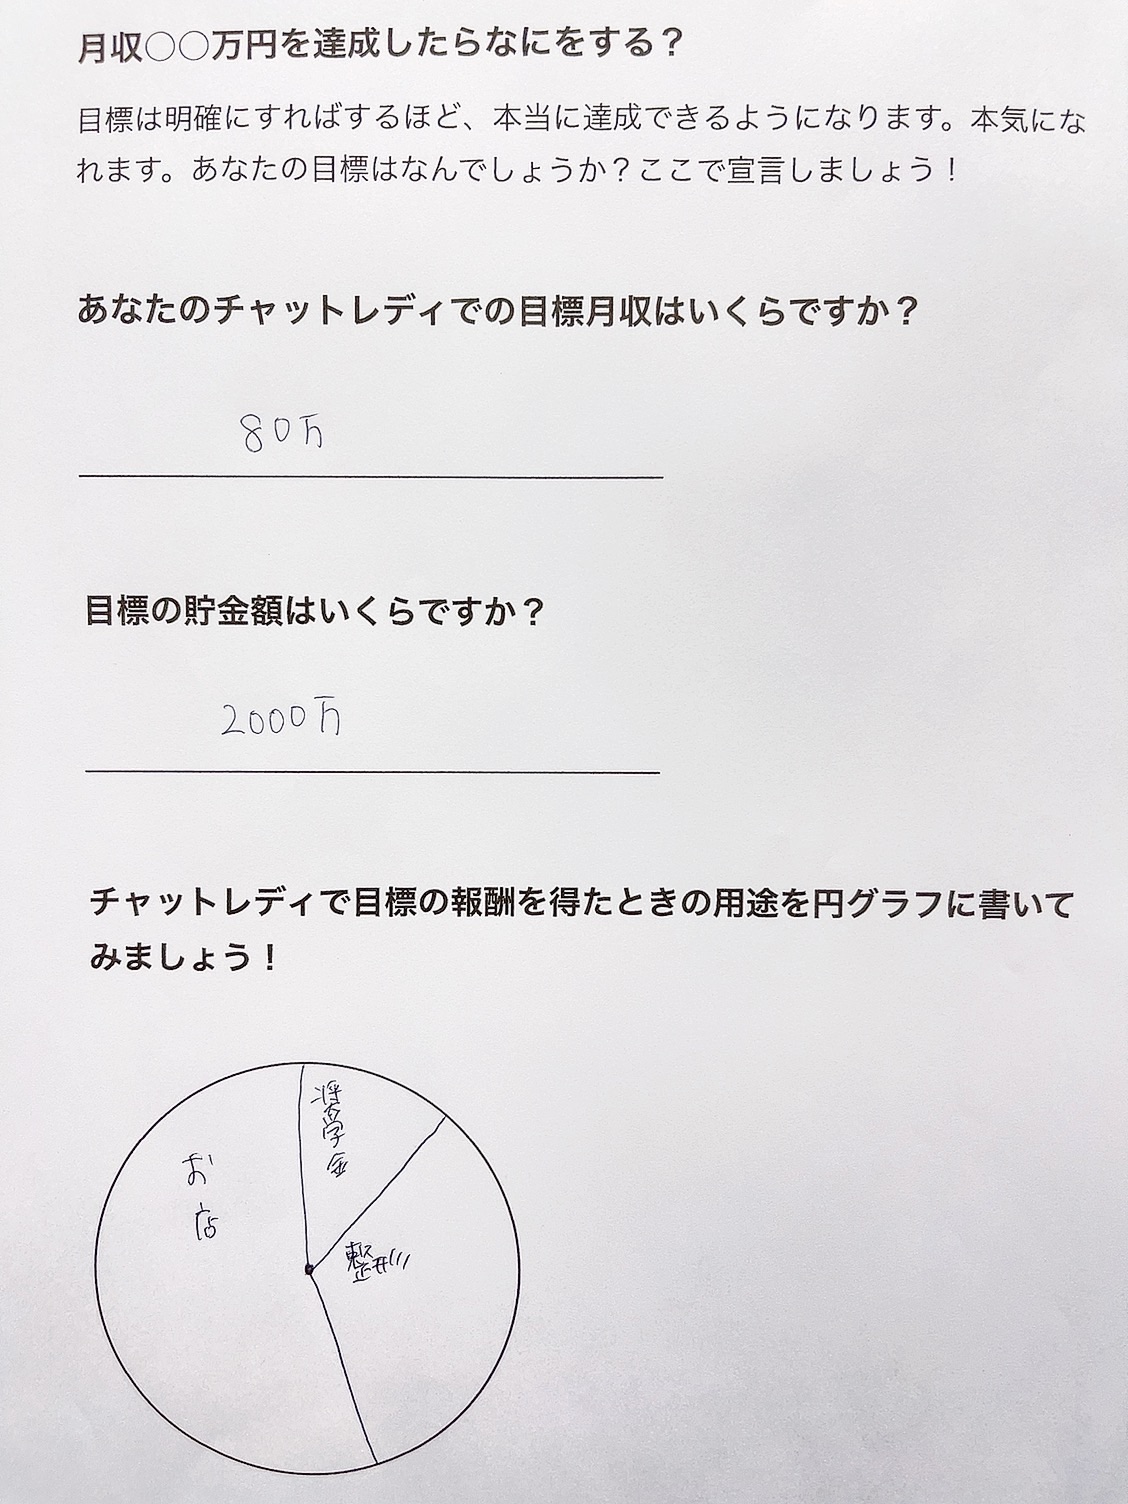 月収○○万円を達成したらなにをする？
目標は明確にすればするほど、本当に達成できるようになります。本気にな
れます。あなたの目標はなんでしょうか？ここで宣言しましょう！
あなたのチャットレディでの目標月収はいくらですか？
80万
目標の貯金額はいくらですか？
2000万
チャットレディで目標の報酬を得たときの用途を円グラフに書いて
みましょう！
奨学金
お店
整形